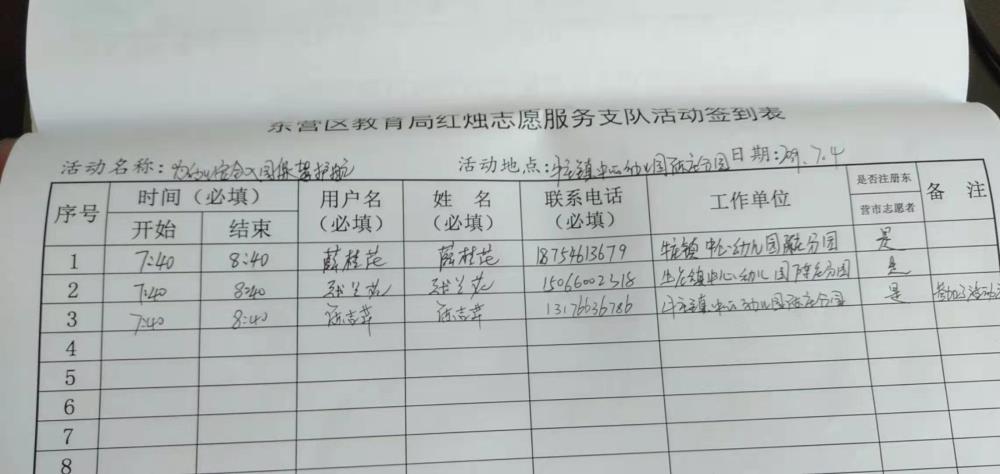 东营区教育局红烛志愿服务支队活动签到表
活动名称:为幼儿安全入园保驾护航 活动地点:牛庄镇中心幼儿园陈庄分园 日期:2019.7.4
序号 时间(必填) 用户名(必填) 姓 名(必填) 联系电话(必填) 工作单位 是否注册东营市志愿者 备 注
开始 结束
1 7:40 8:40 薛桂花 薛桂花 18754613679 牛庄镇中心幼儿园陈庄分园 是
2 7:40 8:40 15066002318 牛庄镇中心幼儿园陈庄分园 是
3 7:40 8:40 13176036786 牛庄镇中心幼儿园陈庄分园 是
4
5
6
7
8